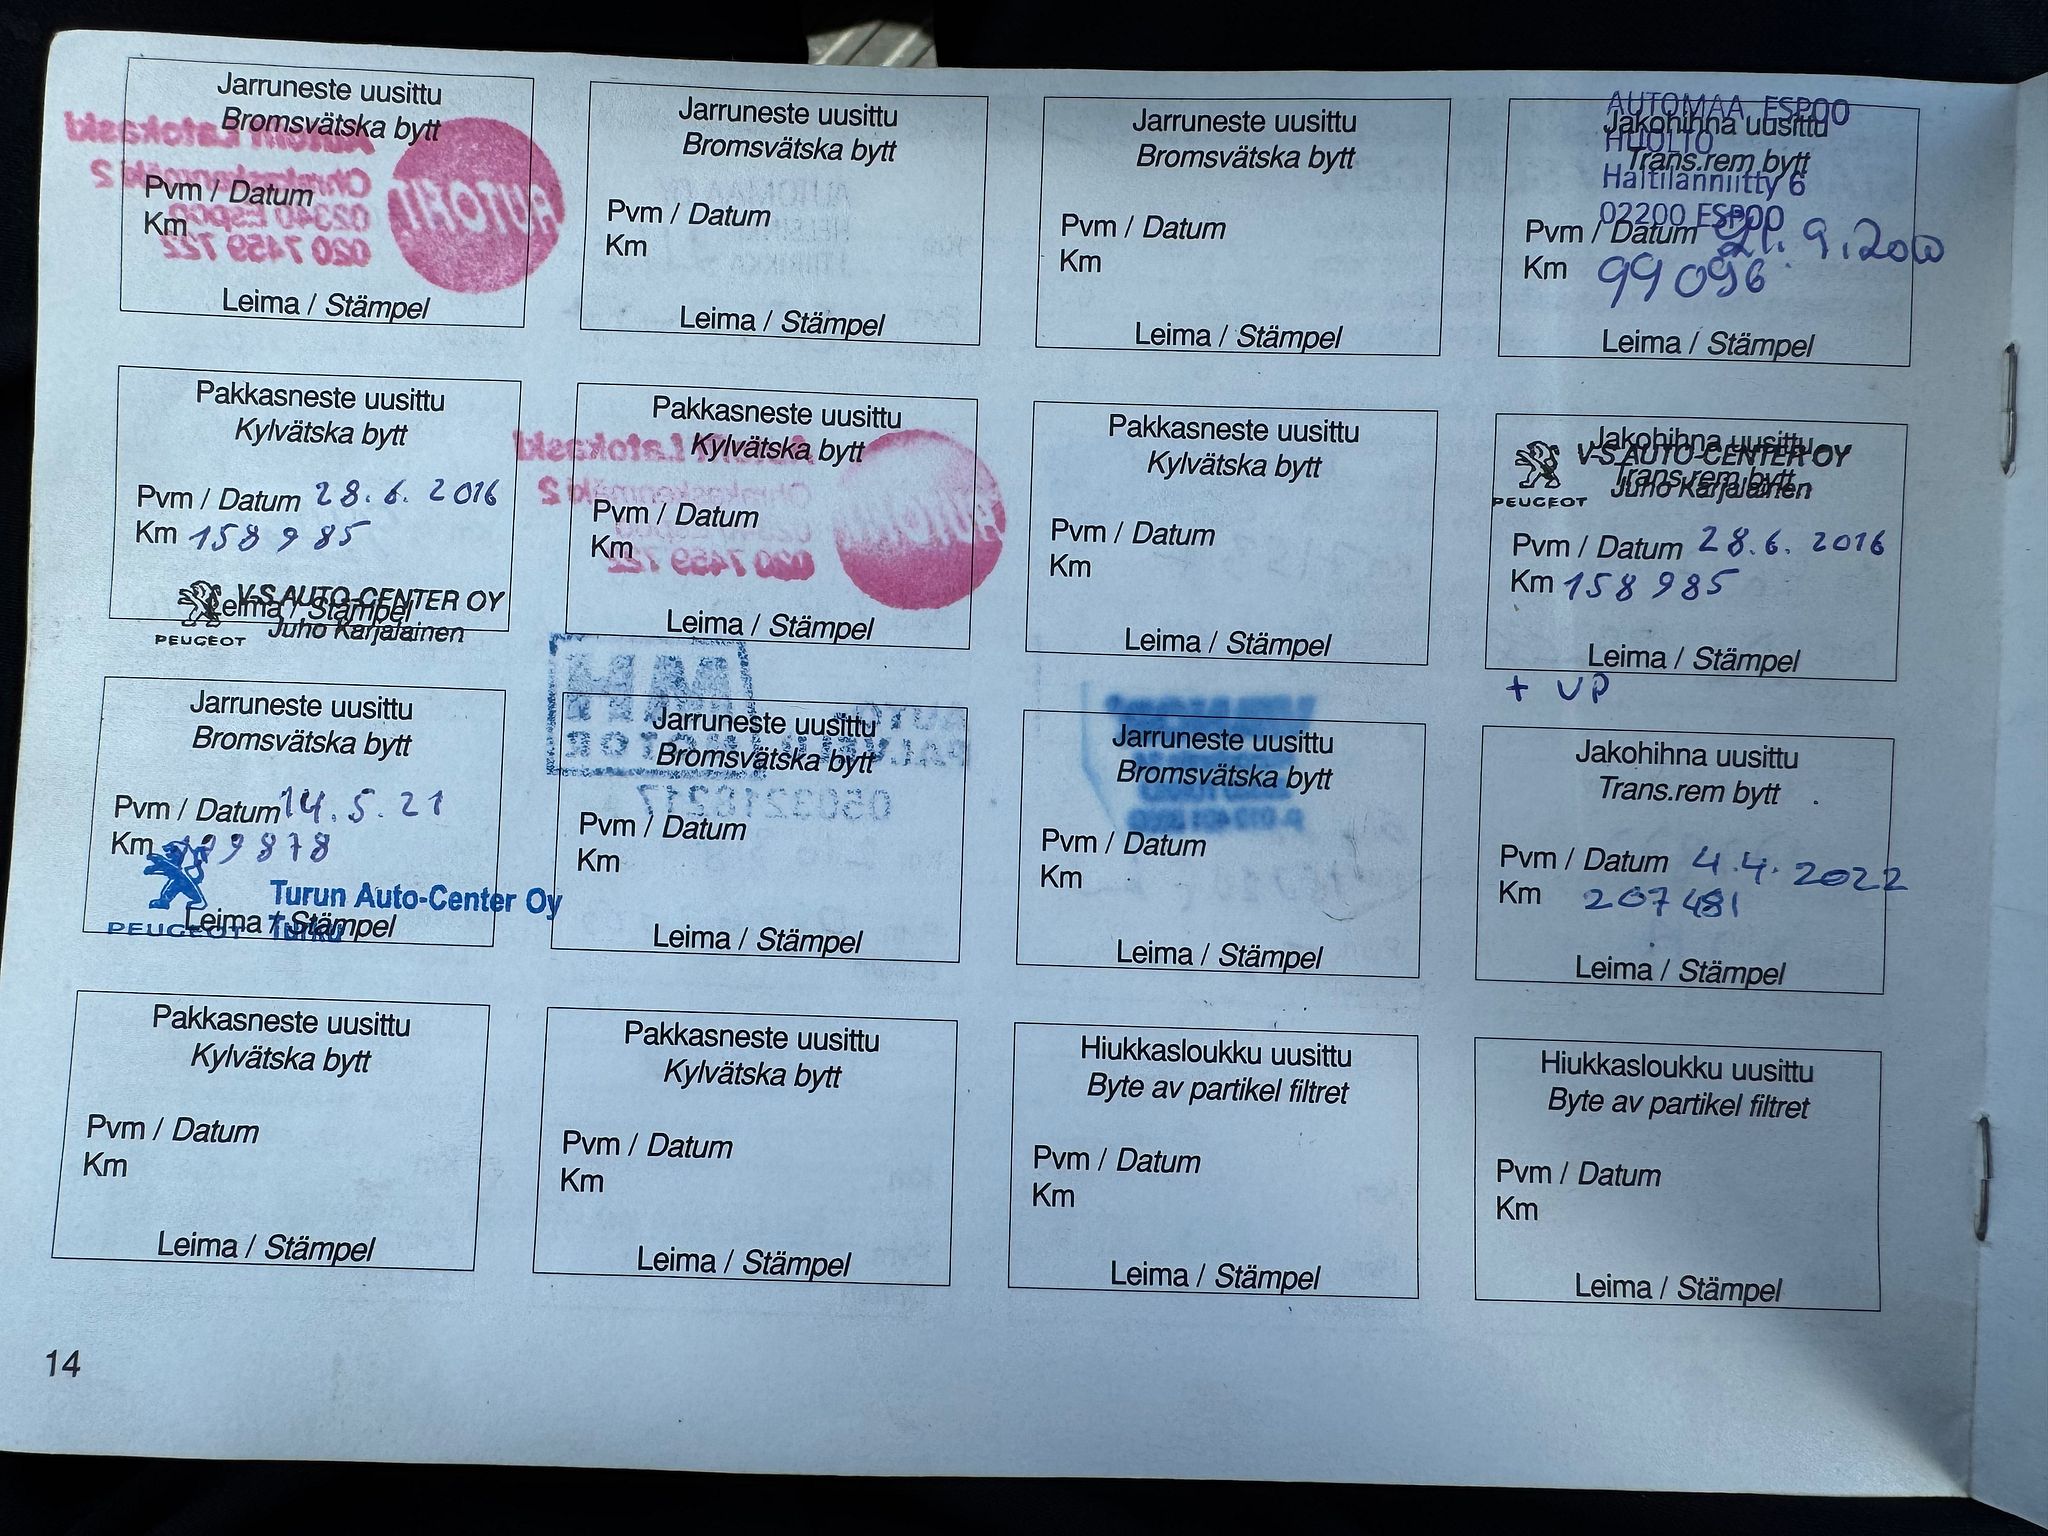 Jarruneste uusittu
Bromsvätska bytt
Autofit Latokaski
Ohrakaskenmäki 2
02340 Espoo
020 7459 722
AUTOFIT
Pvm / Datum
Km
Leima / Stämpel
Jarruneste uusittu
Bromsvätska bytt
Pvm / Datum
Km
Leima / Stämpel
Jarruneste uusittu
Bromsvätska bytt
Pvm / Datum
Km
Leima / Stämpel
AUTOMAA ESPOO
HUOLTO
Haltilanniitty 6
02200 ESPOO
Jakohihna uusittu
Trans.rem bytt
Pvm / Datum 21.9.200
Km 99096
Leima / Stämpel
Pakkasneste uusittu
Kylvätska bytt
Pvm / Datum 28.6.2016
Km 158985
Leima / Stämpel
PEUGEOT
V-S AUTO-CENTER OY
Juho Karjalainen
Pakkasneste uusittu
Kylvätska bytt
Latokaski
020 7459 722
Pvm / Datum
Km
Leima / Stämpel
Pakkasneste uusittu
Kylvätska bytt
Pvm / Datum
Km
Leima / Stämpel
Jakohihna uusittu
Trans.rem bytt
PEUGEOT
V-S AUTO-CENTER OY
Juho Karjalainen
Pvm / Datum 28.6.2016
Km 158985
Leima / Stämpel
+ VP
Jarruneste uusittu
Bromsvätska bytt
Pvm / Datum 14.5.21
Km 199878
Leima / Stämpel
PEUGEOT
Turun Auto-Center Oy
Turku
Jarruneste uusittu
Bromsvätska bytt
0503218217
Pvm / Datum
Km
Leima / Stämpel
Jarruneste uusittu
Bromsvätska bytt
Pvm / Datum
Km
Leima / Stämpel
Jakohihna uusittu
Trans.rem bytt
Pvm / Datum 4.4.2022
Km 207481
Leima / Stämpel
Pakkasneste uusittu
Kylvätska bytt
Pvm / Datum
Km
Leima / Stämpel
Pakkasneste uusittu
Kylvätska bytt
Pvm / Datum
Km
Leima / Stämpel
Hiukkasloukku uusittu
Byte av partikel filtret
Pvm / Datum
Km
Leima / Stämpel
Hiukkasloukku uusittu
Byte av partikel filtret
Pvm / Datum
Km
Leima / Stämpel
14